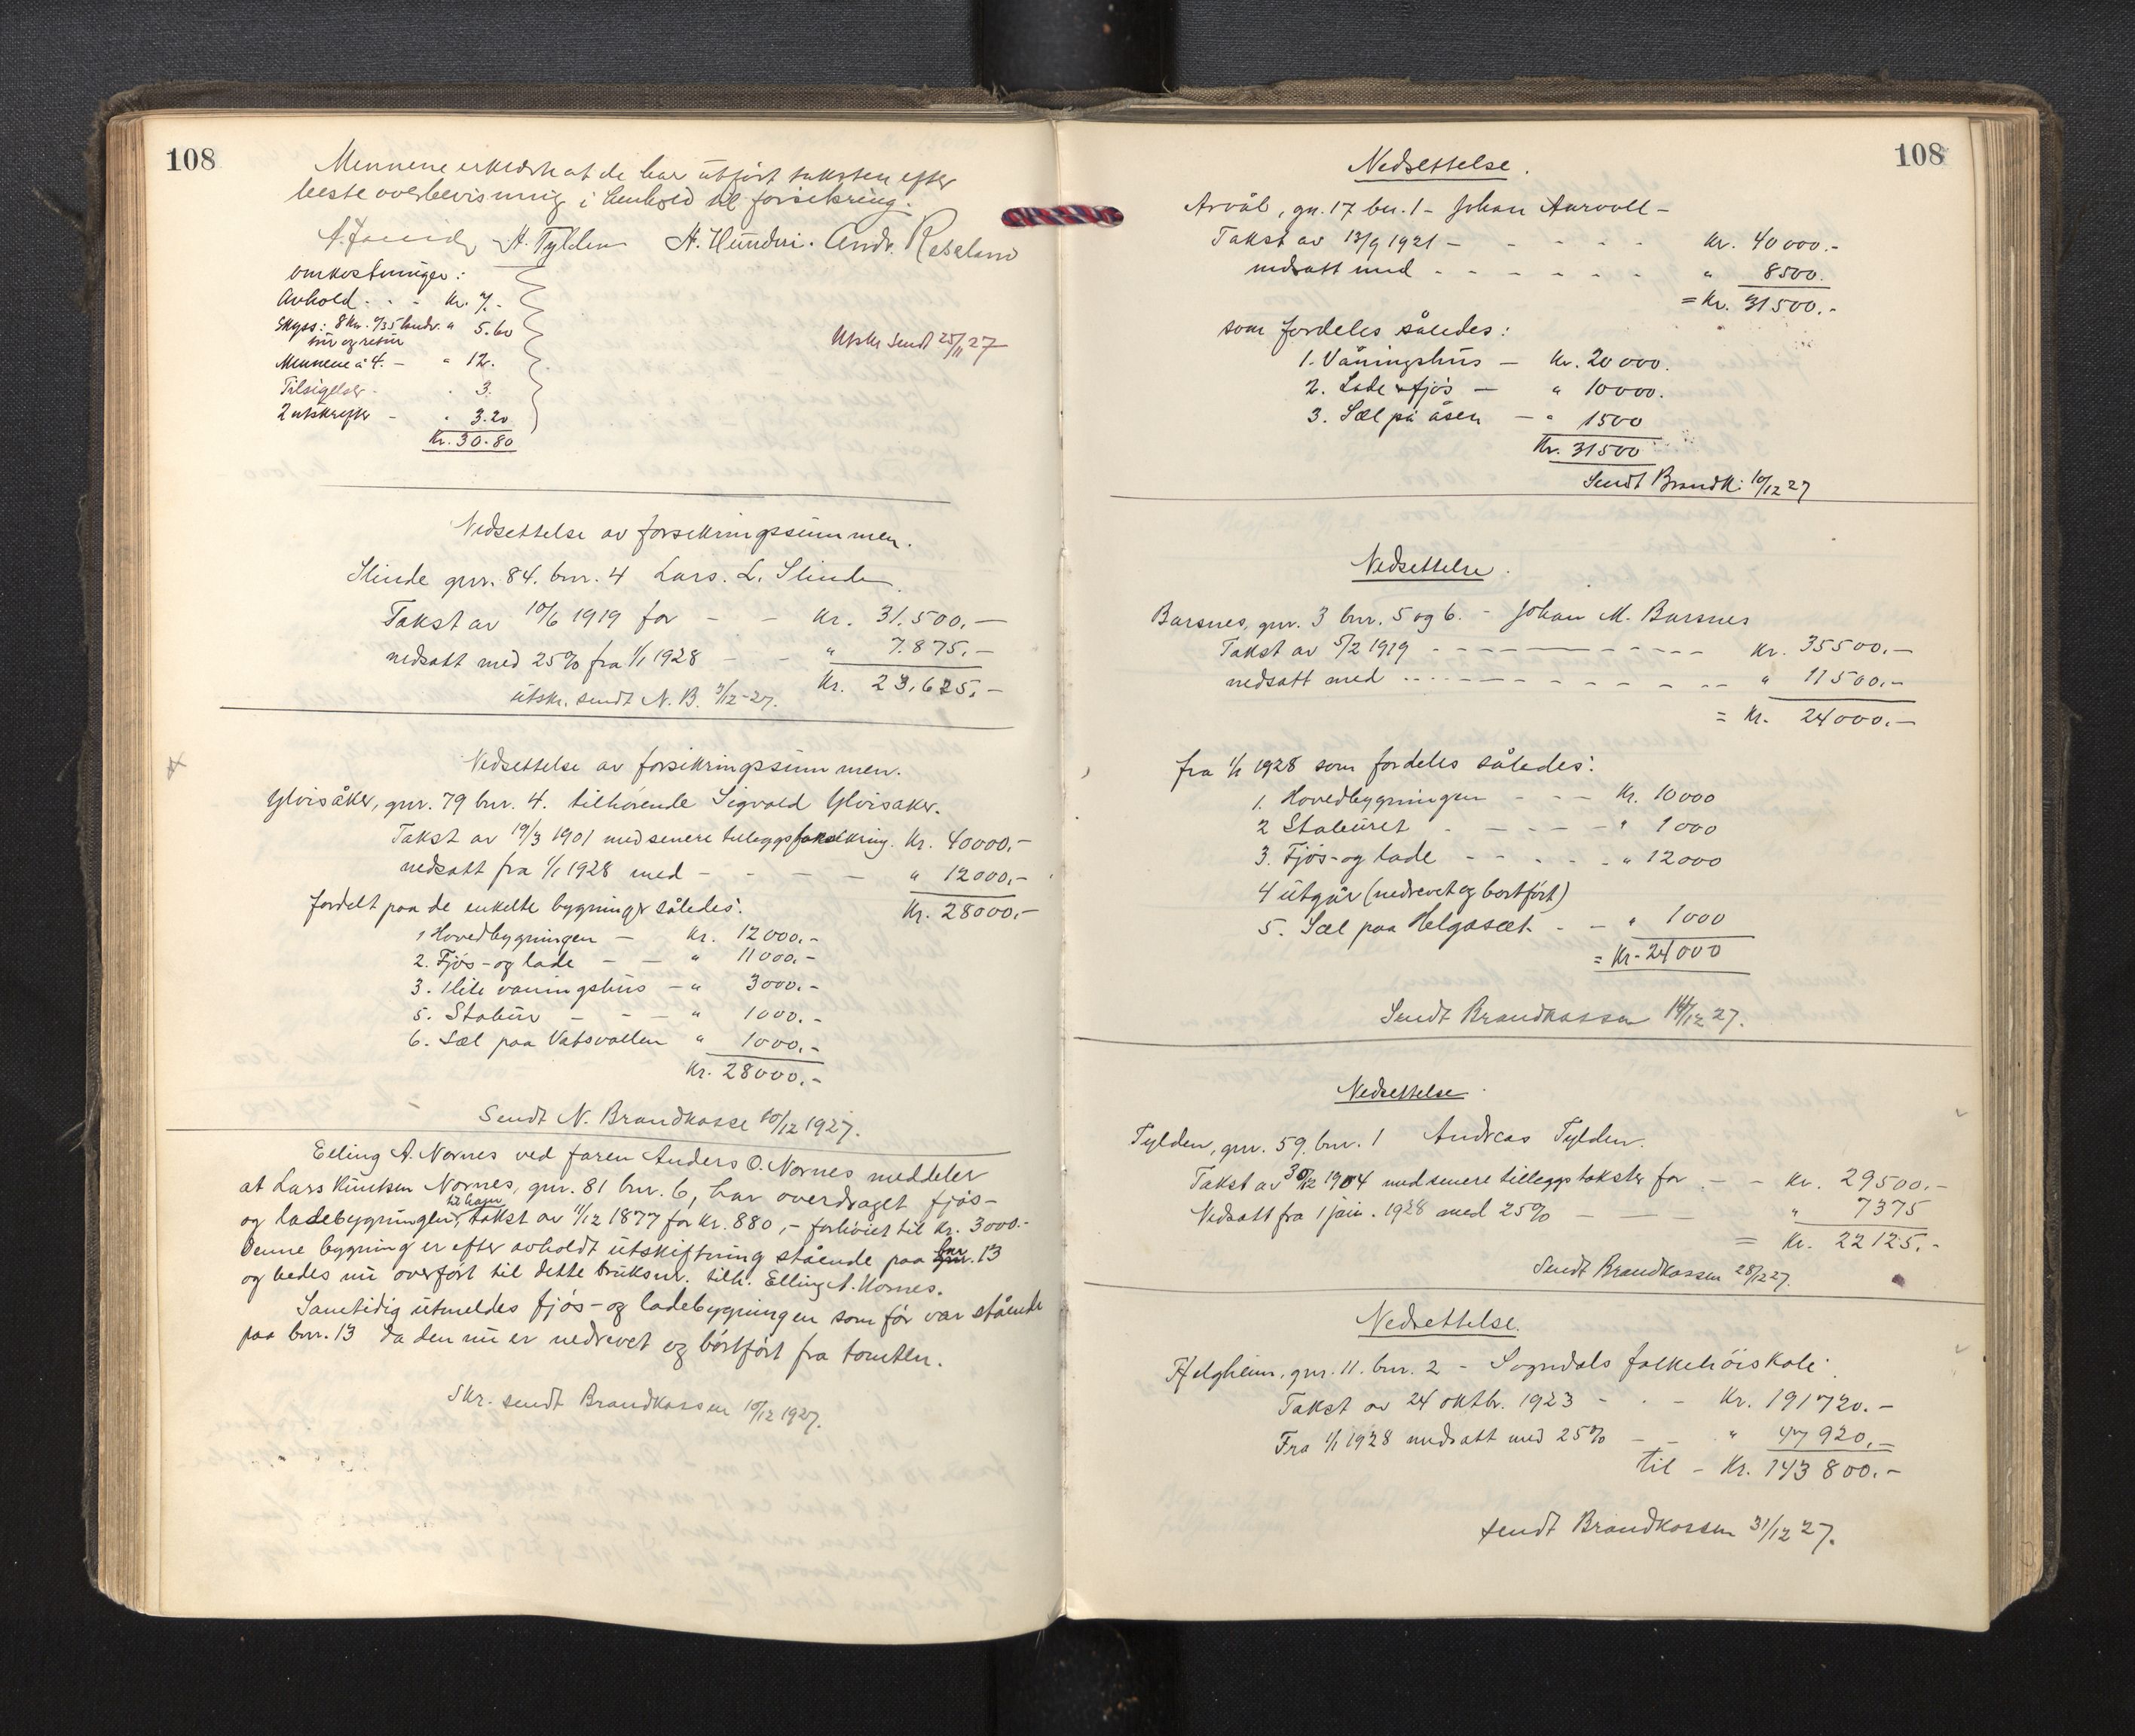 108
Mennene erklærte at de har utført taksten efter
beste overbevisning i henhold til forsikring.
H. Tylden H. Hundere. Andr. Røseland
Omkostninger:
Avhold - - - Kr. 7.-
Skyss: 8 Km. a/35 " 5.60
tur og retur
Mennene à 4. - " 12.
Tilsigelser - " 3.
2 utskrifter - " 3.20
Kr. 30.80
Utskr. sendt 25/11 27
Nedsettelse av forsikringssummen.
Slinde gnr. 84. bnr. 4 Lars. L. Slinde
Takst av 10/6 1919 for - - Kr. 31.500.-
nedsatt med 25% fra 1/1 1928 - - " 7.875.-
Kr. 23.625.-
utskr. sendt N. B. 7/12-27.
Nedsettelse av forsikringssummen.
Ylvisåker, gnr. 79 bnr. 4. tilhørende Sigvald Ylvisaker.
Takst av 19/3 1901 med senere tilleggsforsikring. Kr. 40000.-
nedsatt fra 1/1 1928 med - - - - " 12000.-
Kr. 28000.-
fordelt paa de enkelte bygninger således:
1 Hovedbygningen - Kr. 12000.-
2. Fjøs- og lade - - " 11000.-
3. Lite vaaningshus - " 3000.-
5. Stabur - - - " 1000.-
6. Sæl paa Vatsvollen " 1000.-
Kr. 28000.-
Sendt N. Brandkasse 10/12 1927.
Elling A. Nornes ved faren Anders O. Nornes meddeler
at Lars Knutsen Nornes, gnr. 81 bnr. 6, har overdraget fjøs-
til ham
og ladebygningen, takst av 11/12 1877 for Kr. 880,- forhøiet til Kr. 3000.-
Denne bygning er efter avholdt utskiftning stående paa bnr. 13
og bedes nu overført til dette bruksnr. tilh. Elling A. Nornes.
Samtidig utmeldes fjøs- og ladebygningen som før var stående
paa bnr. 13 da den nu er nedrevet og bortført fra tomten.
Skr. sendt Brandkassen 10/12 1927.
108
Nedsettelse.
Arvål, gn. 17 bn. 1 - Johan Aarvoll -
Takst av 13/9 1921 - - - - - Kr. 40000.-
nedsatt med - - - - - - " 8500.
= Kr. 31500.-
som fordeles således:
1. Våningshus - Kr. 20000.
2. Lade & fjøs - " 10000.
3. Sæl på åsen - " 1500
Kr. 31500
Sendt Brandk: 10/12 27
Nedsettelse.
Barsnes, gnr. 3 bnr. 5 og 6. - Johan M. Barsnes
Takst av 5/2 1919 - - - - - - - - Kr. 35500.-
nedsatt med - - - - - - - - - " 11500.-
= Kr. 24000.-
fra 1/1 1928 som fordeles således:
1. Hovedbygningen - - - Kr. 10000
2 Staburet - - - - - " 1000
3. Fjøs- og lade - - - - " 12000
4 utgår (nedrevet og bortført)
5. Sæl paa Helgasæt - - " 1000
= Kr. 24000
Sendt Brandkassen 14/12 27.
Nedsettelse.
Tylden, gnr. 59. bnr. 1 Andreas Tylden.
Takst av 30/12 1904 med senere tilleggstakster for - - Kr. 29500.-
Nedsatt fra 1 jan. 1928 med 25% - - - " 7375
= Kr. 22125.-
Sendt Brandkassen 28/12 27.
Nedsettelse.
Helgheim, gnr. 11. bnr. 2 - Sogndals folkehøiskole.
Takst av 24 oktbr. 1923 - - - Kr. 191720.-
Fra 1/1 1928 nedsatt med 25% - - " 47920.-
til - Kr. 143800.-
Sendt Brandkassen 31/12 27.